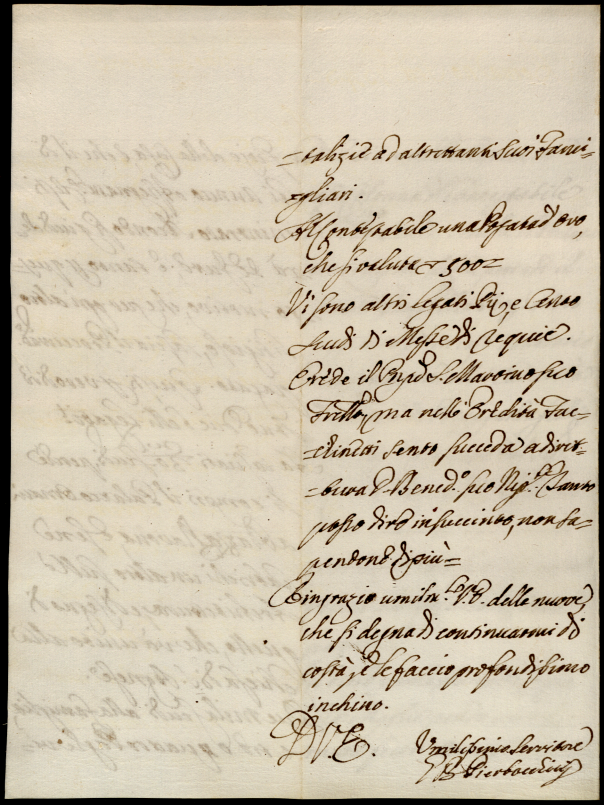 =talizie ad altrettanti suoi Fami=
=gliari.
Al Contestabile una Posata d'Oro,
che si valuta 500=
Vi sono altri legati Pii, e Cento
scudi di Messe di requie.
Erede il suo
Frello, ma nelle Eredità
sento succeda a dirit=
=tura D. Bened.o suo Nip.
posso dirle in succinto, non sa=
=pendone di più=
Ringrazio umilm. V.E. delle nuove,
che si degna di continuarmi di
costà, e le faccio profondissimo
inchino.
D.V.E.
Umilissimo Servitore